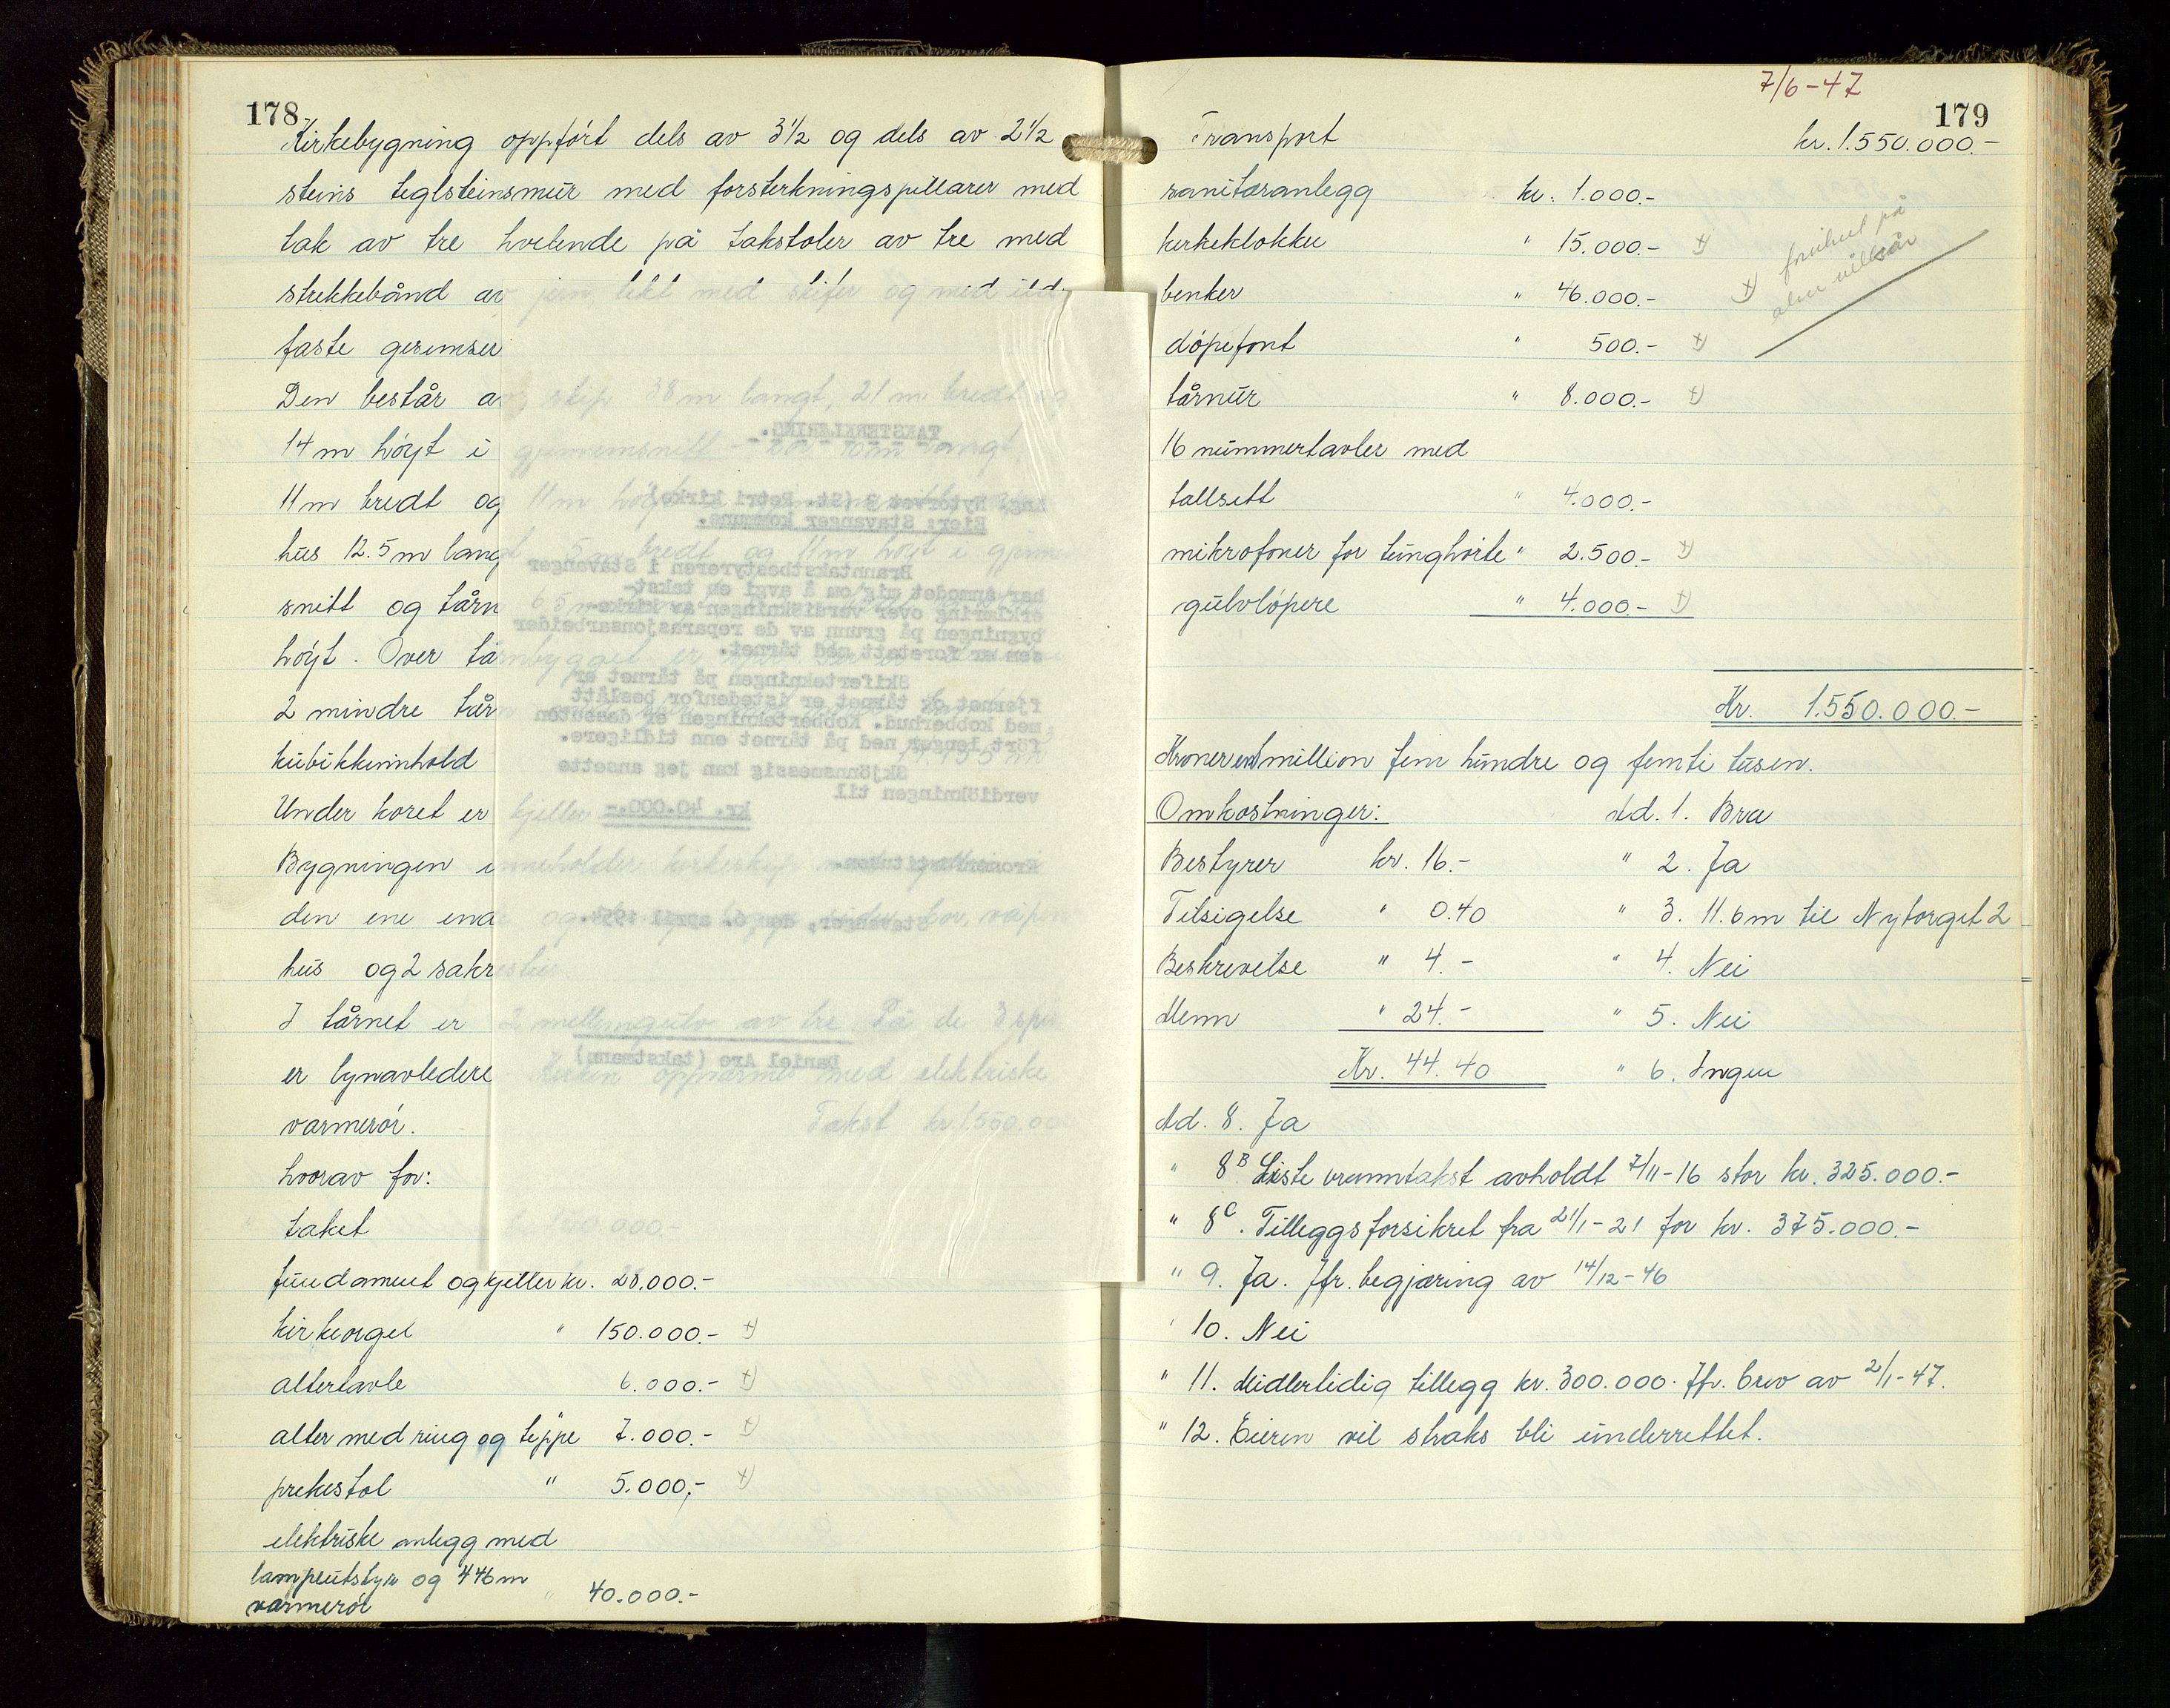 178
Kirkebygning oppført dels av 3½ og dels av 2½
steins teglsteinsmur med forsterkningspillarer med
tak av tre hvelende på takstoler av tre med
strekkebånd av jern, tekt med skifer og med ild-
faste gesimser
Den består av skip 38 m langt, 21 m bredt og
14 m høyt i gjennemsnitt langt
11 m bredt og 11 m
hus 12.5 m langt 5 m bredt og 11 m høyt i gjen
snitt og tårn
høyt. Over tårnbygget er
2 mindre tårn
kubikkinnhold
Under koret er kjeller
Bygningen inneholder kirkeskip
den ene enda og kor, våpen
hus og 2 sakrestier
I tårnet er 2 mellemgulv av tre På de 3 spir
er lynavledere Kirken oppvarmes med elektriske
varmerør. Takst kr. 1.550.000
hvorav for:
taket kr. 150.000-
fundament og kjeller kr. 28.000.-
kirkeorgel " 150.000.- †)
altertavle 6.000.- †)
alter med ring og teppe " 7.000.- †)
prekestol " 5.000,- †)
elektriske anlegg med
lampeutstyr og 446 m
varmerør " 40.000.-
TAKSTERKLÆRING.
Ang. Nytorvet 9 (St. Petri kirke)
Eier: Stavanger kommune.
Branntakstbestyreren i Stavanger
har anmodet mig om å avgi en takst-
erklæring over verdiökningen av kirke-
bygningen på grunn av de reparasjonsarbeider
som er foretatt med tårnet.
Skifertekningen på tårnet er
fjernet og tårnet er istedenfor beslått
med kobberhud. Kobbertekningen er dessuten
fört lenger ned på tårnet enn tidligere.
Skjönnsmessig kan jeg ansette
verdiökningen til
kr. 40.000.-
Kronerförtitusen.
Stavanger, den 6. april 1954.
Daniel Are (takstmann)
7/6-47
179
Transport kr. 1.550.000.-
sanitæranlegg kr. 1.000.-
kirkeklokke " 15.000.- †)
benker " 46.000.-
døpefont " 500.- †)
tårnur " 8.000.- †)
†) forsikret på
alm vilkår
16 nummertavler med
tallsett " 4.000.-
mikrofoner for tunghørte " 2.500.- †)
gulvløpere " 4.000.- †)
Kr. 1.550.000.-
Kroner en million fem hundre og femti tusen.
Omkostninger: Ad. 1. Bra
Bestyrer kr. 16.- " 2. Ja
Tilsigelse " 0.40 " 3. 11.6 m til Nytorget 2
Beskrivelse " 4.- " 4. Nei
Menn " 24.- " 5. Nei
Kr. 44.40 " 6. Ingen
Ad. 8. Ja
" 8B Siste branntakst avholdt 7/11-16 stor kr. 325.000.-
" 8C. Tilleggsforsikret fra 21/1-21 for kr. 375.000.-
" 9. Ja. Jfr. begjæring av 14/12-46
" 10. Nei
" 11. Midlertidig tillegg kr. 300.000. Jfr. brev av 2/1-47.
" 12. Eieren vil straks bli underrettet.